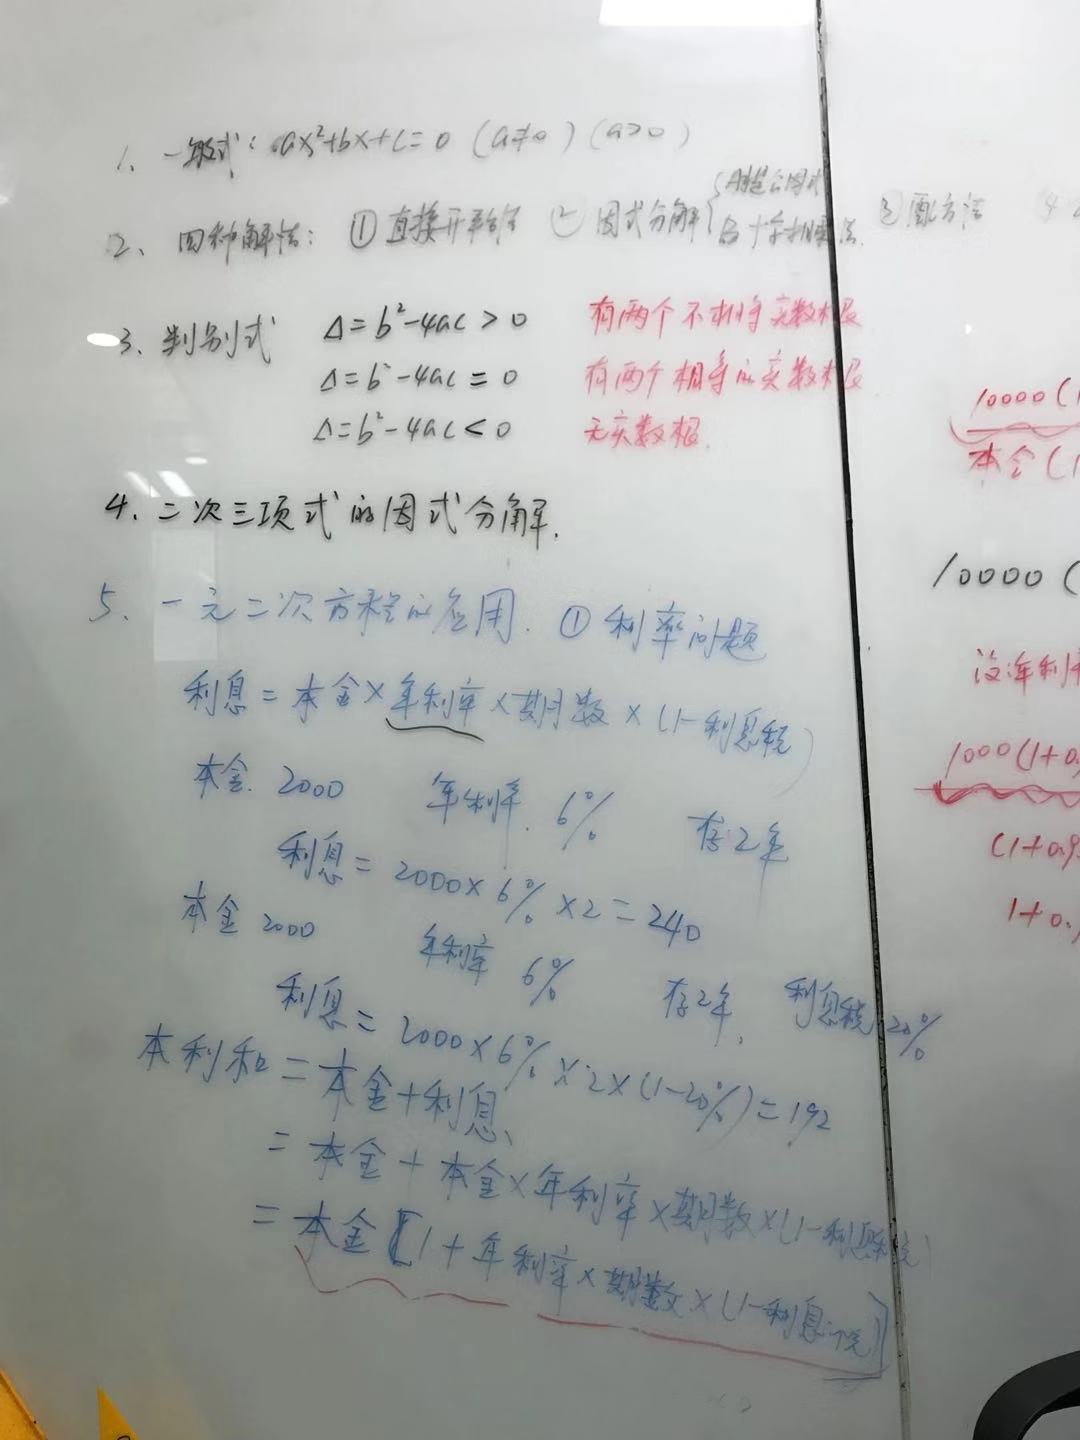 1、一般式：ax²+bx+c=0 (a≠0) (a>0)
2、四种解法： ① 直接开平方 ② 因式分解 { A提公因式
B 十字相乘法. ③ 配方法 4
3、判别式 Δ=b²-4ac>0 有两个不相等实数根
Δ=b²-4ac=0 有两个相等的实数根
Δ=b²-4ac<0 无实数根.
4、二次三项式的因式分解.
5、一元二次方程的应用. ① 利率问题
利息=本金×年利率×期数×(1-利息税)
本金. 2000 年利率. 6% 存2年
利息=2000×6%×2=240
本金 2000 年利率 6% 存2年, 利息税 20%
利息=2000×6%×2×(1-20%)=192
本利和=本金+利息
=本金+本金×年利率×期数×(1-利息税)
=本金[1+年利率×期数×(1-利息税)]
10000(1
本金(1
10000(
设年利率
1000(1+0.
(1+0.9
1+0.